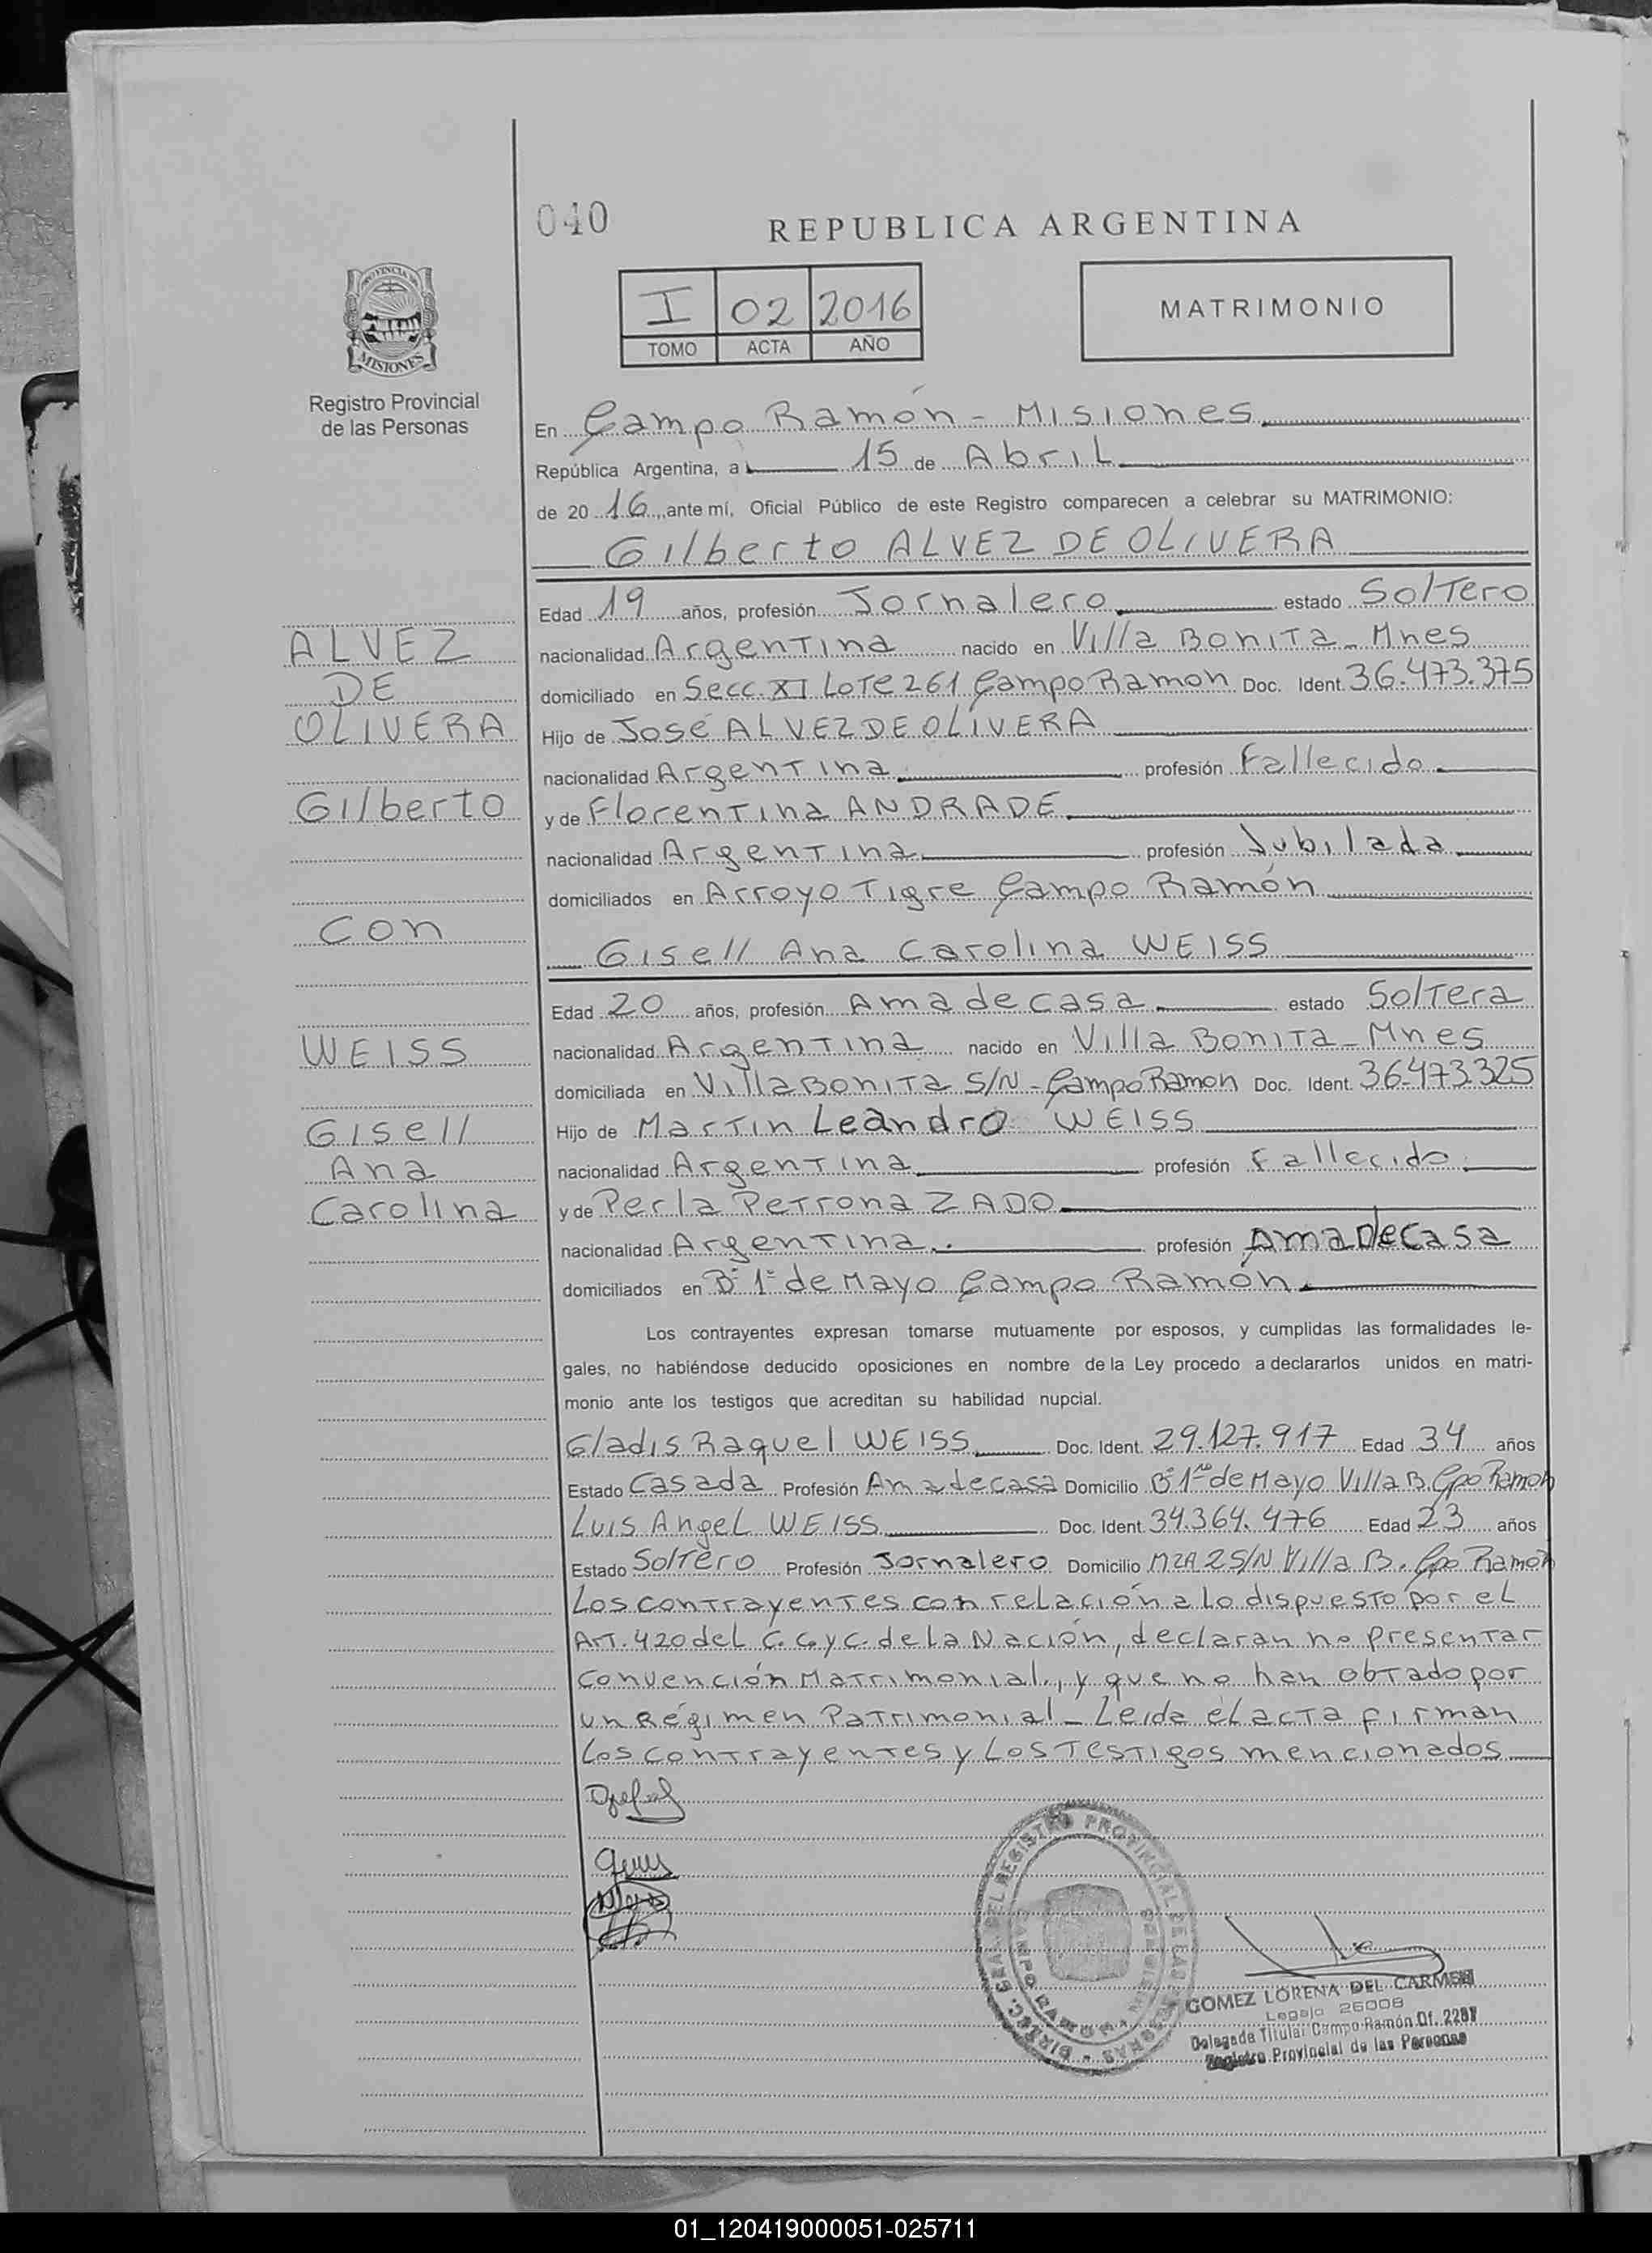 040
REPUBLICA ARGENTINA
PROVINCIA DE
MISIONES
Registro Provincial
de las Personas
I 02 2016
TOMO ACTA AÑO
MATRIMONIO
En Campo Ramón - Misiones
República Argentina, a 15 de Abril
de 20 16 ,ante mí, Oficial Público de este Registro comparecen a celebrar su MATRIMONIO:
Gilberto ALVEZ DE OLIVERA
Edad 19 años, profesión Jornalero estado Soltero
nacionalidad Argentina nacido en Villa Bonita - Mnes
domiciliado en Secc. XI Lote 261 Campo Ramon Doc. Ident. 36.473.375
Hijo de José ALVEZ DE OLIVERA
nacionalidad Argentina profesión Fallecido
y de Florentina ANDRADE
nacionalidad Argentina profesión Jubilada
domiciliados en Arroyo Tigre Campo Ramón
Gisell Ana Carolina WEISS
Edad 20 años, profesión Ama de casa estado Soltera
nacionalidad Argentina nacido en Villa Bonita - Mnes
domiciliada en Villa Bonita S/N - Campo Ramon Doc. Ident. 36.473.325
Hijo de Martin Leandro WEISS
nacionalidad Argentina profesión Fallecido
y de Perla Petrona ZADO
nacionalidad Argentina. profesión Ama De casa
domiciliados en Bº 1º de Mayo Campo Ramón
ALVEZ
DE
OLIVERA
Gilberto
con
WEISS
Gisell
Ana
Carolina
Los contrayentes expresan tomarse mutuamente por esposos, y cumplidas las formalidades le-
gales, no habiéndose deducido oposiciones en nombre de la Ley procedo a declararlos unidos en matri-
monio ante los testigos que acreditan su habilidad nupcial.
Gladis Raquel WEISS Doc. Ident. 29.127.917 Edad 34 años
Estado Casada Profesión Ama de casa Domicilio Bº 1ro de Mayo Villa B. Cpo Ramon
Luis Angel WEISS Doc. Ident. 34.364.476 Edad 23 años
Estado Soltero Profesión Jornalero Domicilio MZA 2 S/N Villa B. Cpo Ramón
Los contrayentes con relación a lo dispuesto por el
Art. 420 del C. C. y C. de la Nación, declaran no presentar
convención Matrimonial., y que no han obtado por
un Régimen Patrimonial - Leida el acta firman
los contrayentes y los testigos mencionados
GOMEZ LORENA DEL CARMEN
Legajo 26008
Delegada Titular Campo Ramón Of. 2287
Registro Provincial de las Personas
DIRECC. GRAL. DEL REGISTRO PROVINCIAL DE LAS PERSONAS
CAMPO RAMON
01_120419000051-025711